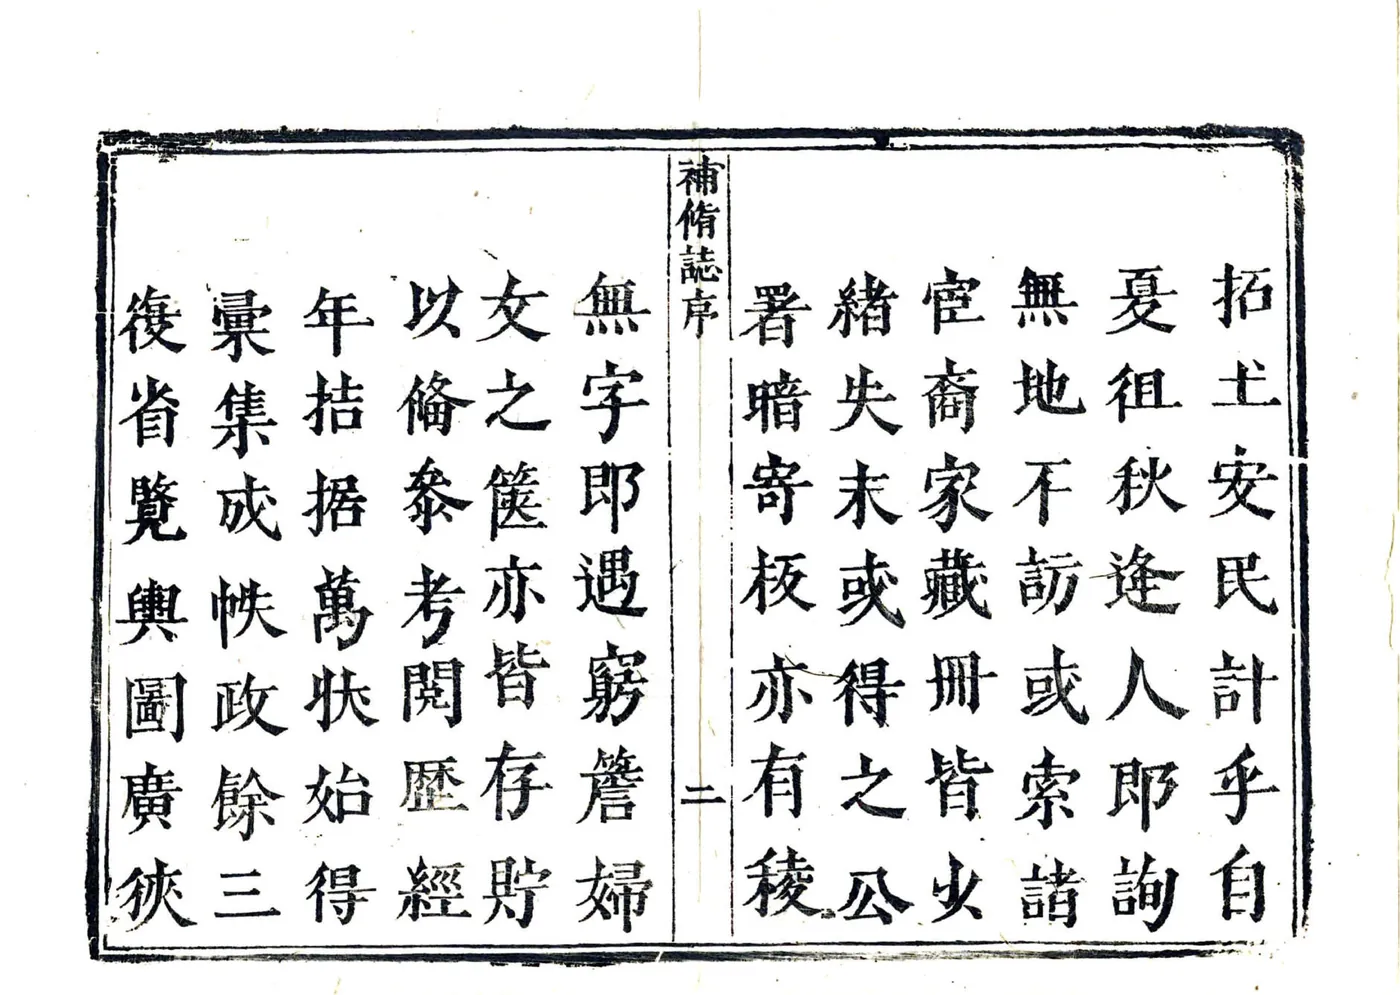 拓土安民計乎自
夏徂秋逢人即詢
無地不訪或索諸
宦裔家藏冊皆少
緒失末或得之公
署暗寄板亦有稜
補脩誌序
二
無字即遇窮簷婦
女之篋亦皆存貯
以偹叅考閱歷經
年拮据萬狀始得
彚集成帙政餘三
復省覽輿圖廣狹